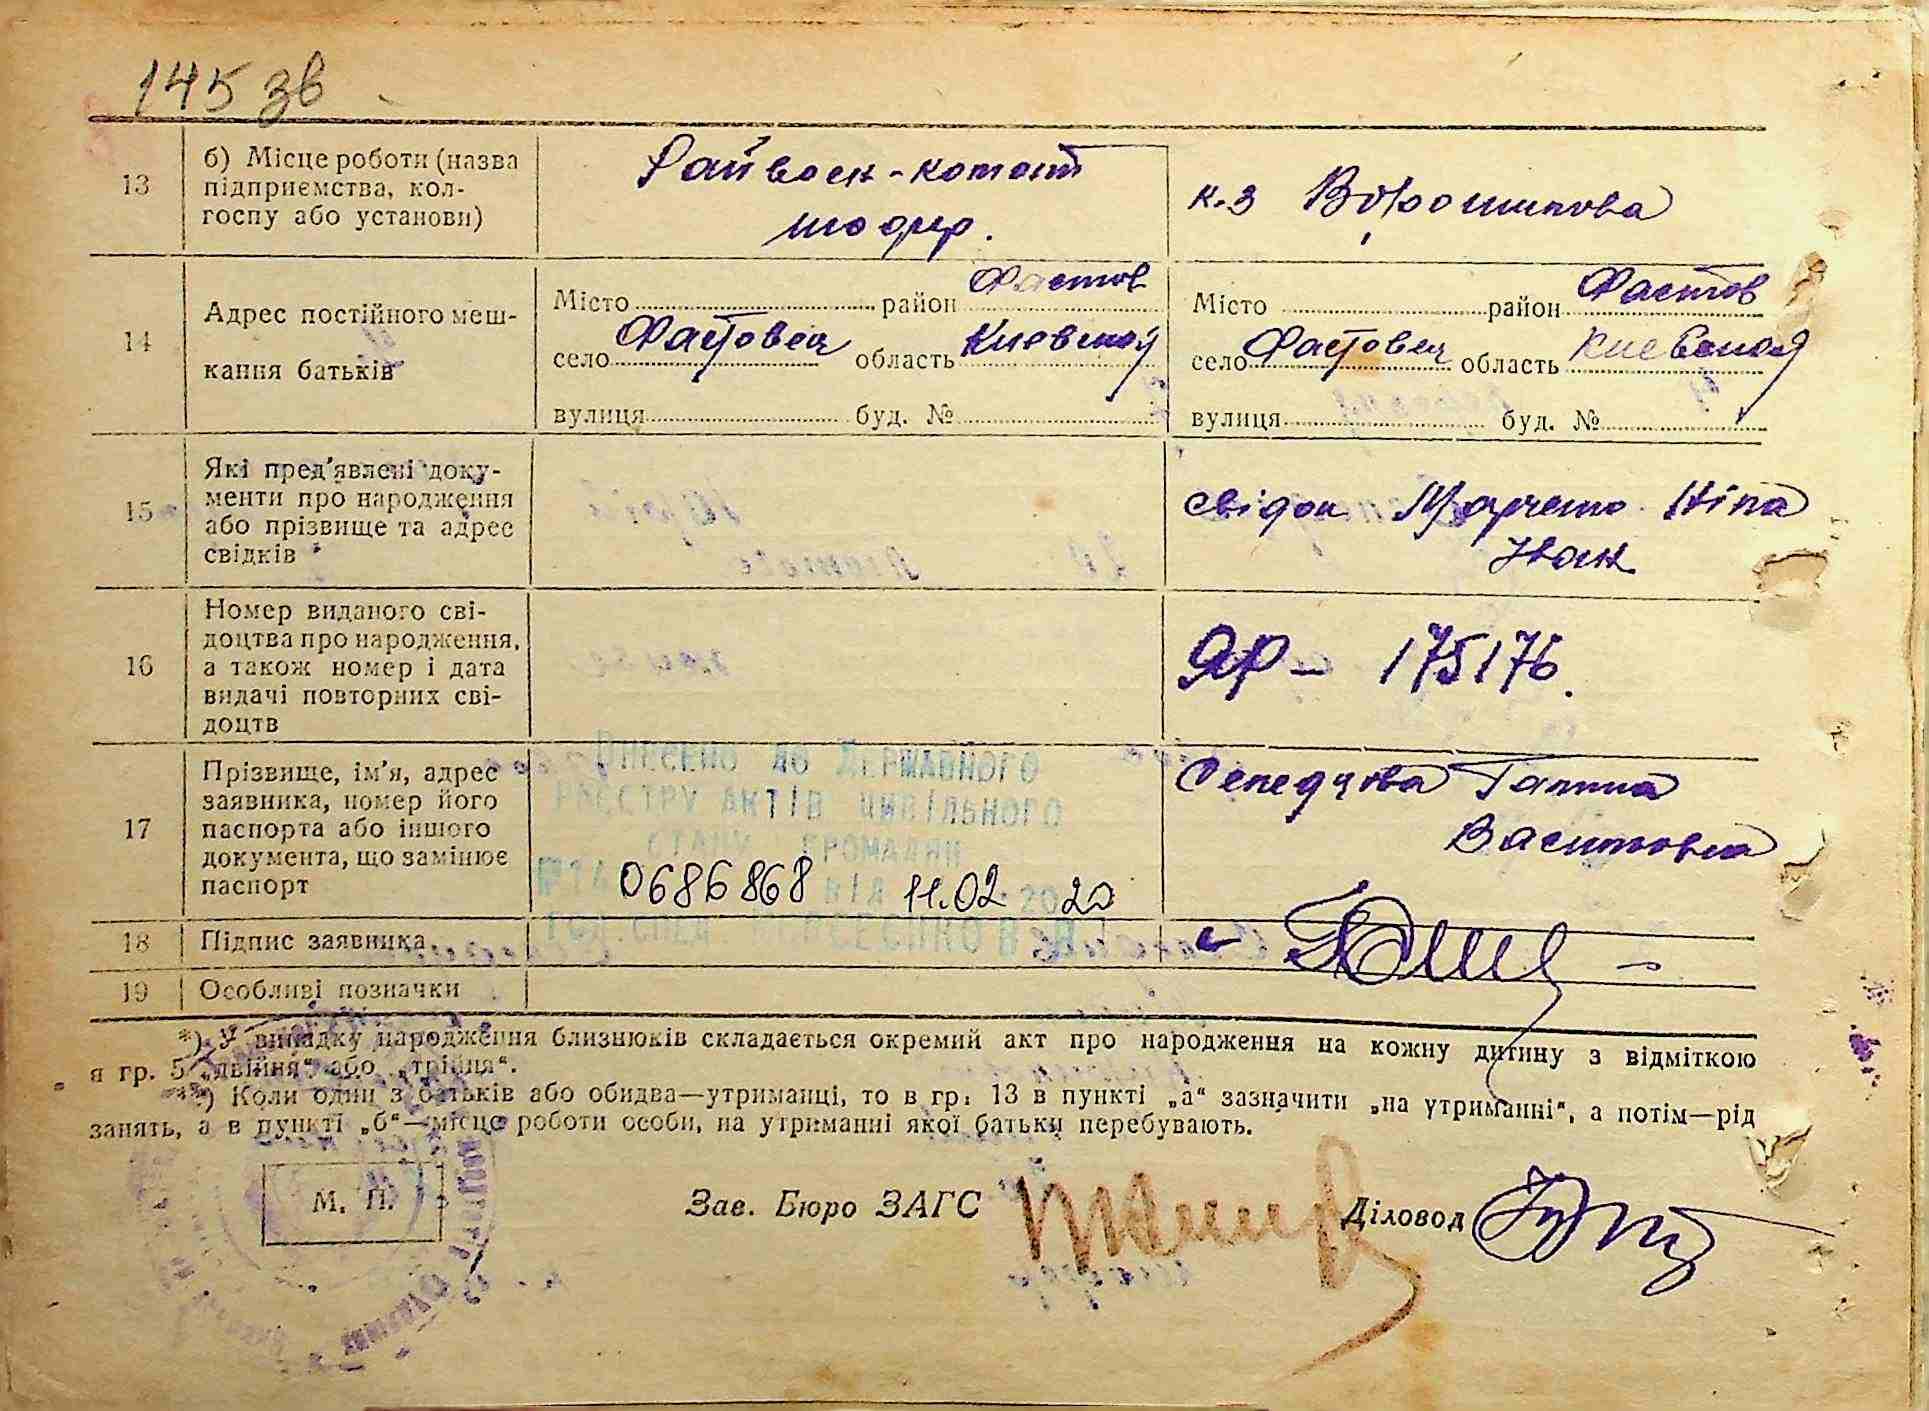 145 зв
13
б) Місце роботи (назва
підприємства, кол-
госпу або установи)
Райвоен-комат
шофер.
к-з Ворошилова
14
Адрес постійного меш-
кання батьків
Місто район Фастов
село Фастовец область Киевской
вулиця буд. №
Місто район Фастов
село Фастовец область Киевской
вулиця буд. №
15
Які пред'явлені доку-
менти про народження
або прізвище та адрес
свідків
свідок Марченко Ніна
Іван
16
Номер виданого сві-
доцтва про народження,
а також номер і дата
видачі повторних сві-
доцтв
ЯР - 175176.
17
Прізвище, ім'я, адрес
заявника, номер його
паспорта або іншого
документа, що замінює
паспорт
Внесено до Державного
реєстру актів цивільного
стану громадян
№ 14 0686868 від 11.02 2020
Василовна
18
Підпис заявника
19
Особливі позначки
*) У випадку народження близнюків складається окремий акт про народження на кожну дитину з відміткою
я гр. 5 „двійня“ або „трійця“.
**) Коли один з батьків або обидва—утриманці, то в гр: 13 в пункті „а“ зазначити „на утриманні“, а потім—рід
занять, а в пункті „б“—місце роботи особи, на утриманні якої батьки перебувають.
М. П.
Зав. Бюро ЗАГС
Діловод